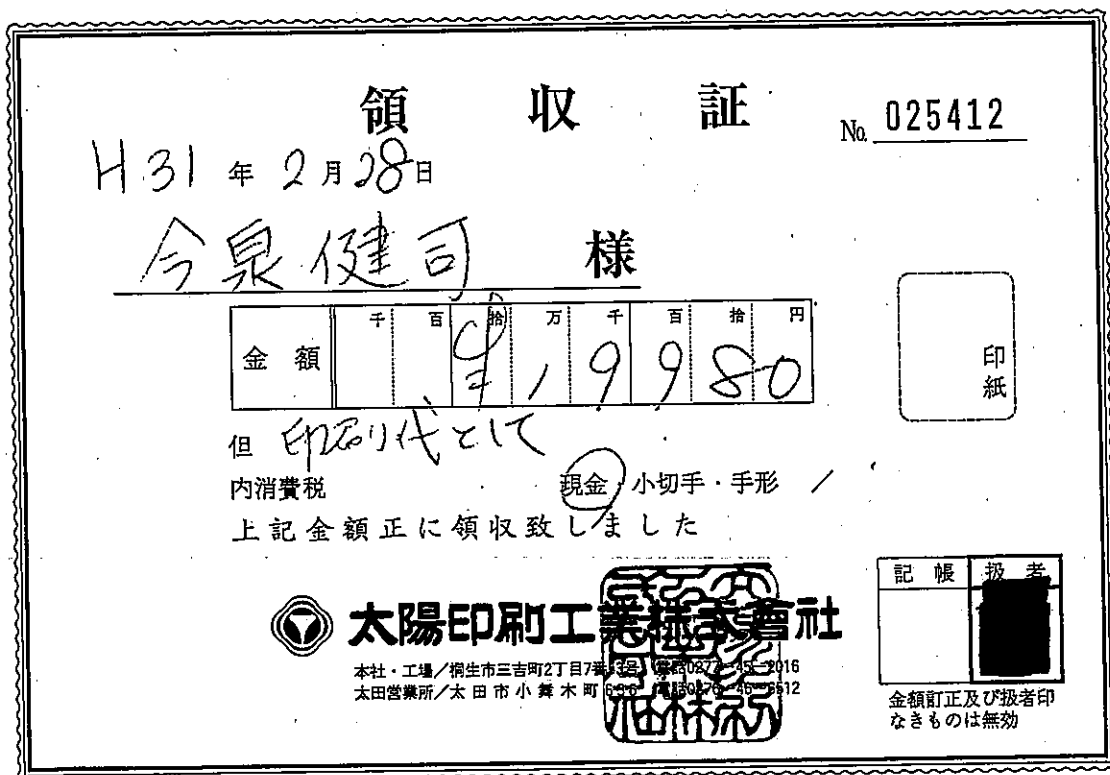 領収証
No. 025412
H31年2月28日
今泉健司 様
金額 千 百 拾 万 千 百 拾 円
1,9980
但 印刷代として
内消費税 現金・小切手・手形
上記金額正に領収致しました
印紙
太陽印刷工業株式會社
本社・工場/桐生市三吉町2丁目7番 電話0277-45-2016
太田営業所/太田市小舞木町 電話0276-46-
記帳 扱者
金額訂正及び扱者印
なきものは無効